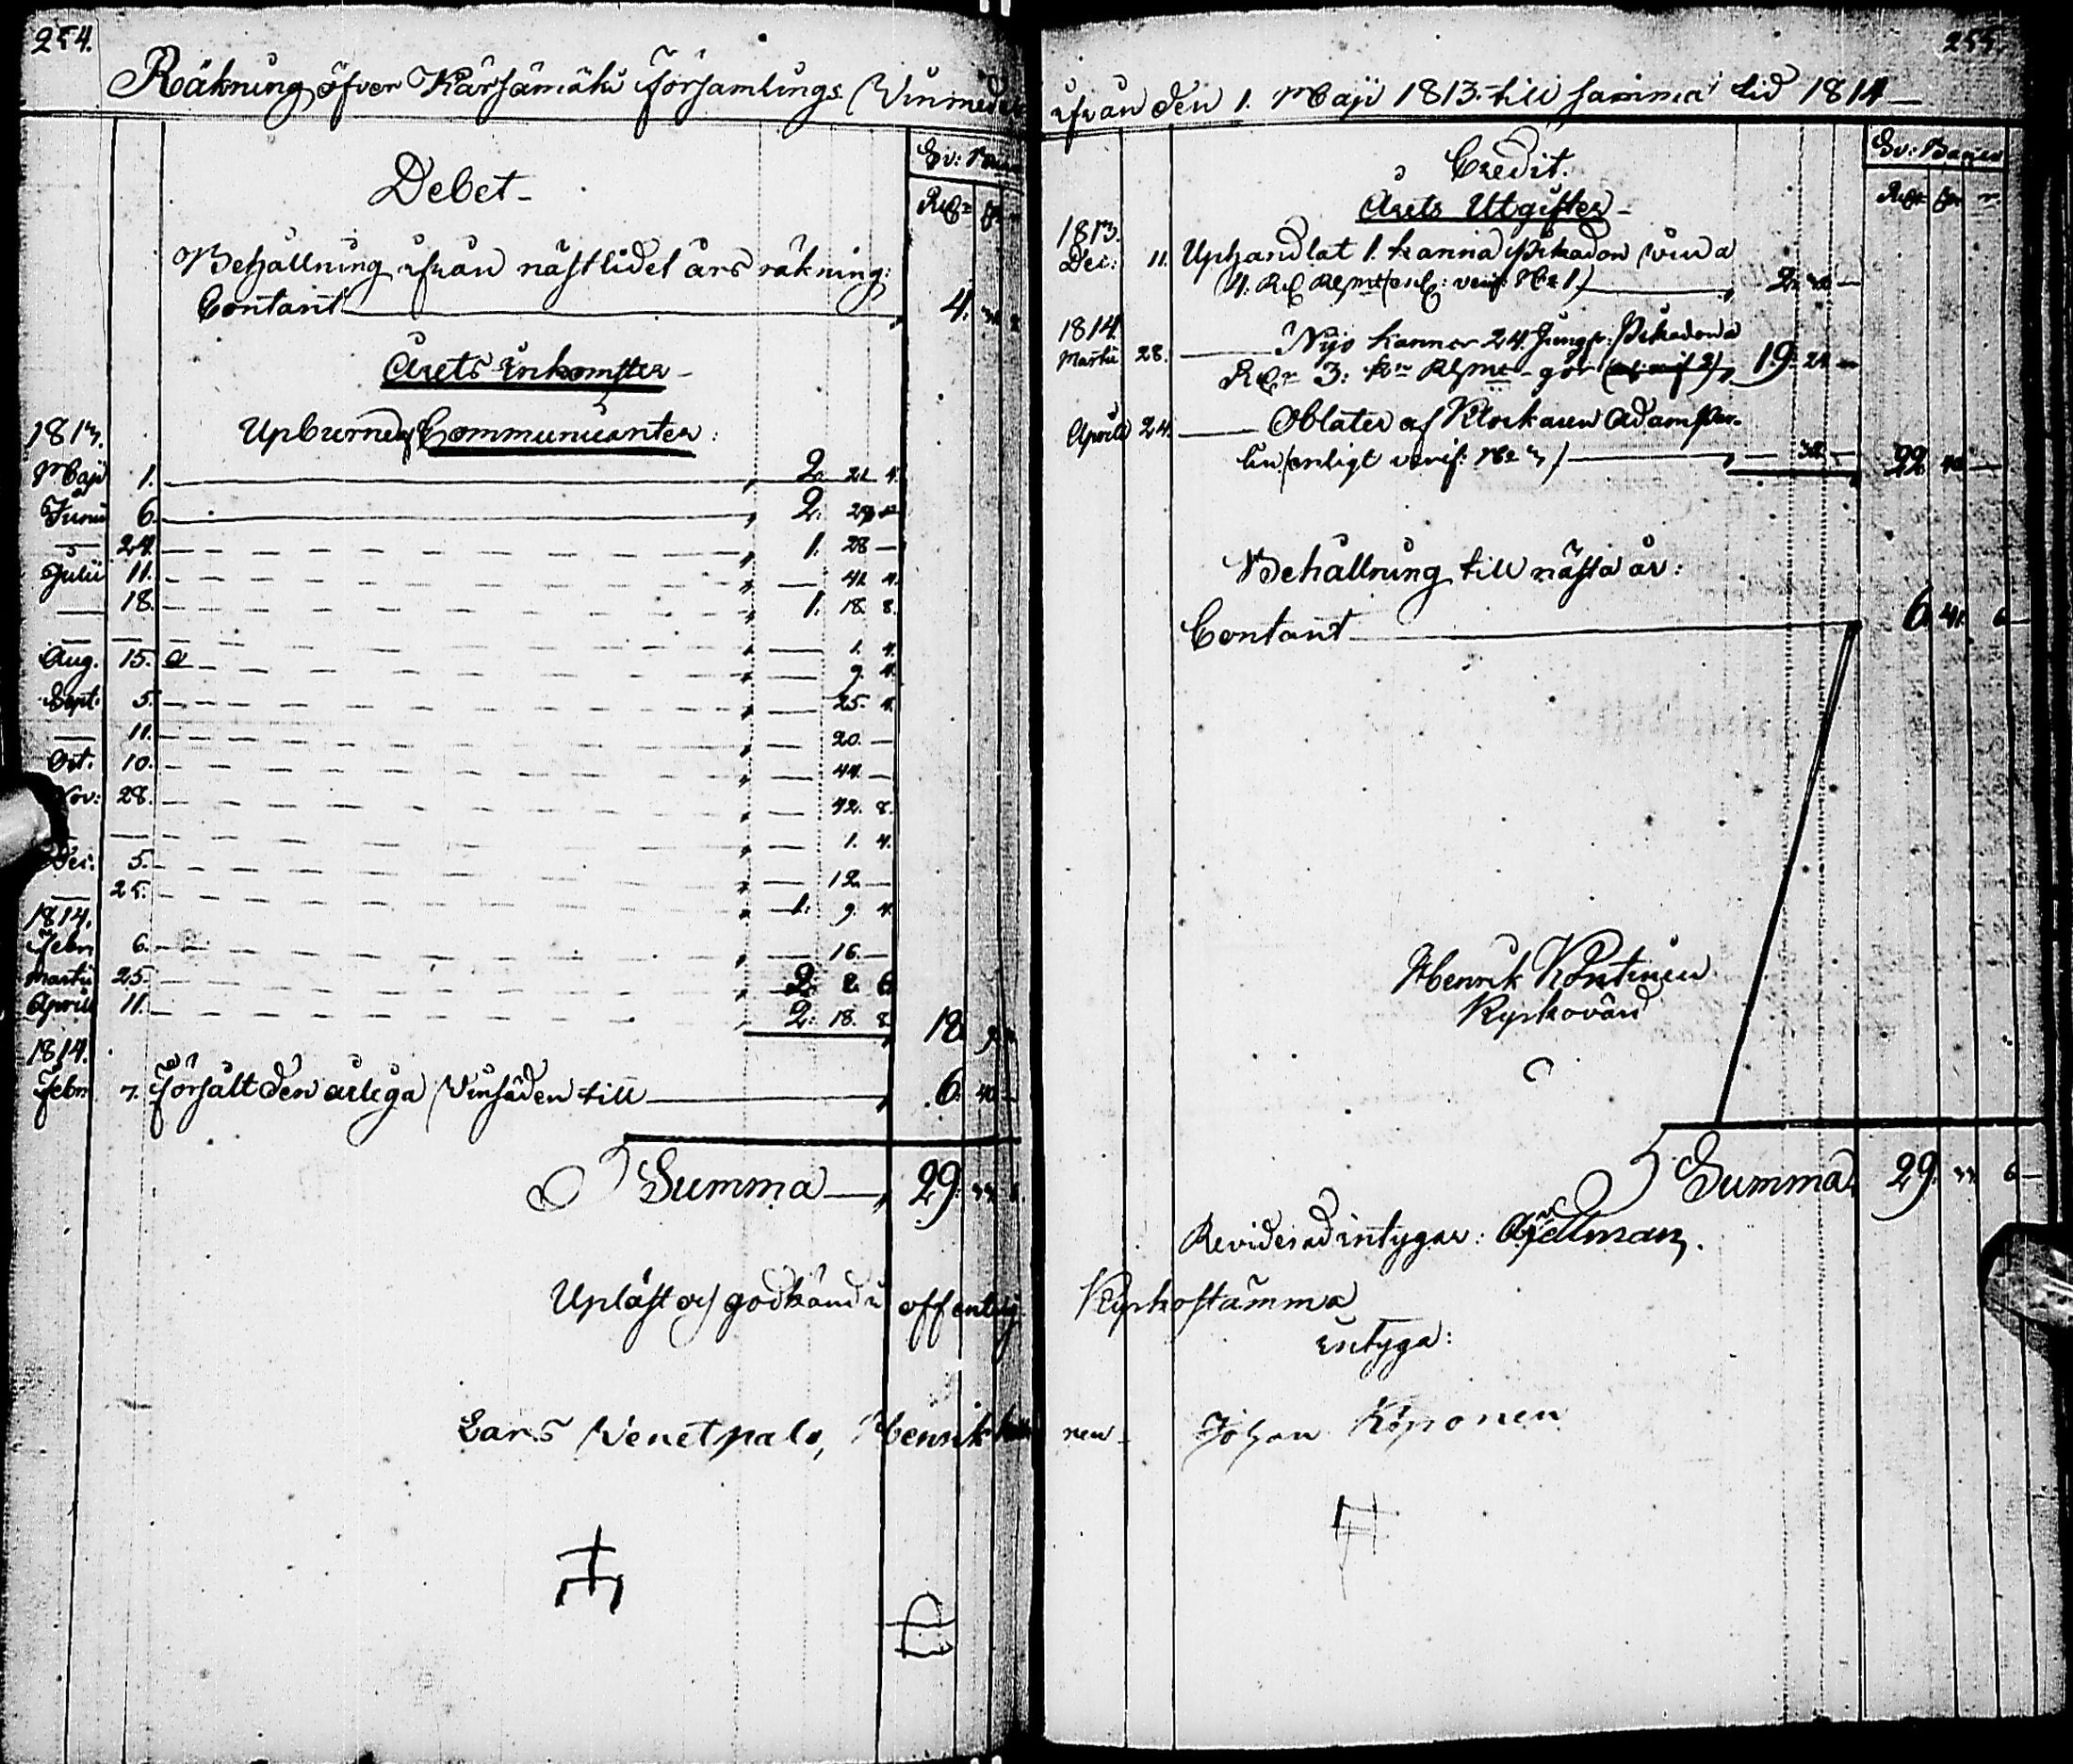 254.
Räkning öfver Kärsämäki Församlings Vinmedel
Sv: Banco
Debet
Behållning ifrån nästlidet års räkning:
Contant 4.
Årets Inkomster
Upburne af Communicanter:
1813.
Maji 1. 2. 21. 4.
Junii 6. 2.
24. 1. 28 —
Julii 11. — 41. 4.
18. 1. 18. 8.
— — — 1. 4.
Aug. 15. — 9. 4.
Sept. 5. — 25. 4.
11. — 20. —
Oct. 10. — 44. —
Nov: 28. — 42. 8.
— — 1. 4.
Dec. 5. — 12. —
25. 1. 9. 4.
1814.
Febr. 6. — 16. —
Martii 25. 2.
Aprill 11. 2. 18. 8. 18.
1814.
Febr. 7. Försålt den årliga Vinsäden till 6. 40. —
Summa 29.
Upläst och godkänd i offentlig
Lars Venetpalo, Henrik
255.
ifrån den 1. Maji 1813 till samma tid 1814
Sv: Banco
Credit.
Årets Utgifter
1813.
Dec: 11. Uphandlat 1. kanna Pikadon vin a
4. Rd Rgmt (enl: verif. No 1) 2.
1814.
Martii 28. — Nijo kannor 24. Jungfr: Pikadon a
3: Rgmt gör 19.
Aprill 24. — Oblater af Klockaren Adam
lin (enligt verif: No 3) — 32. — 22.
Behållning till nästa år:
Contant 6. 41.
Henrik Köntinen
Kyrkovärd
Summa 29.
Reviderad intygar:
Kyrkostämma
intyga:
nen Johan Koponen